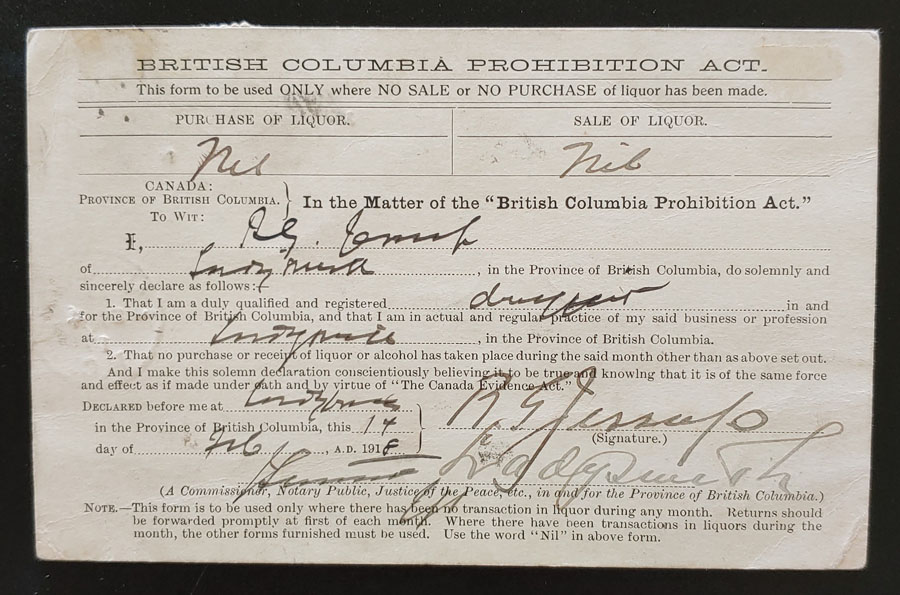 BRITISH COLUMBIA PROHIBITION ACT.
This form to be used ONLY where NO SALE or NO PURCHASE of liquor has been made.
PURCHASE OF LIQUOR. SALE OF LIQUOR.
Nil Nil
CANADA:
PROVINCE OF BRITISH COLUMBIA.
TO WIT:
In the Matter of the "British Columbia Prohibition Act."
I, R.G. Jessup
of Ladysmith, in the Province of British Columbia, do solemnly and
sincerely declare as follows:—
1. That I am a duly qualified and registered druggist in and
for the Province of British Columbia, and that I am in actual and regular practice of my said business or profession
at Ladysmith, in the Province of British Columbia.
2. That no purchase or receipt of liquor or alcohol has taken place during the said month other than as above set out.
And I make this solemn declaration conscientiously believing it to be true and knowing that it is of the same force
and effect as if made under oath and by virtue of "The Canada Evidence Act."
DECLARED before me at Ladysmith
in the Province of British Columbia, this 14
day of Feb, A.D. 1918
R G Jessup
(Signature.)
Ladysmith
(A Commissioner, Notary Public, Justice of the Peace, etc., in and for the Province of British Columbia.)
NOTE.—This form is to be used only where there has been no transaction in liquor during any month. Returns should
be forwarded promptly at first of each month. Where there have been transactions in liquors during the
month, the other forms furnished must be used. Use the word "Nil" in above form.